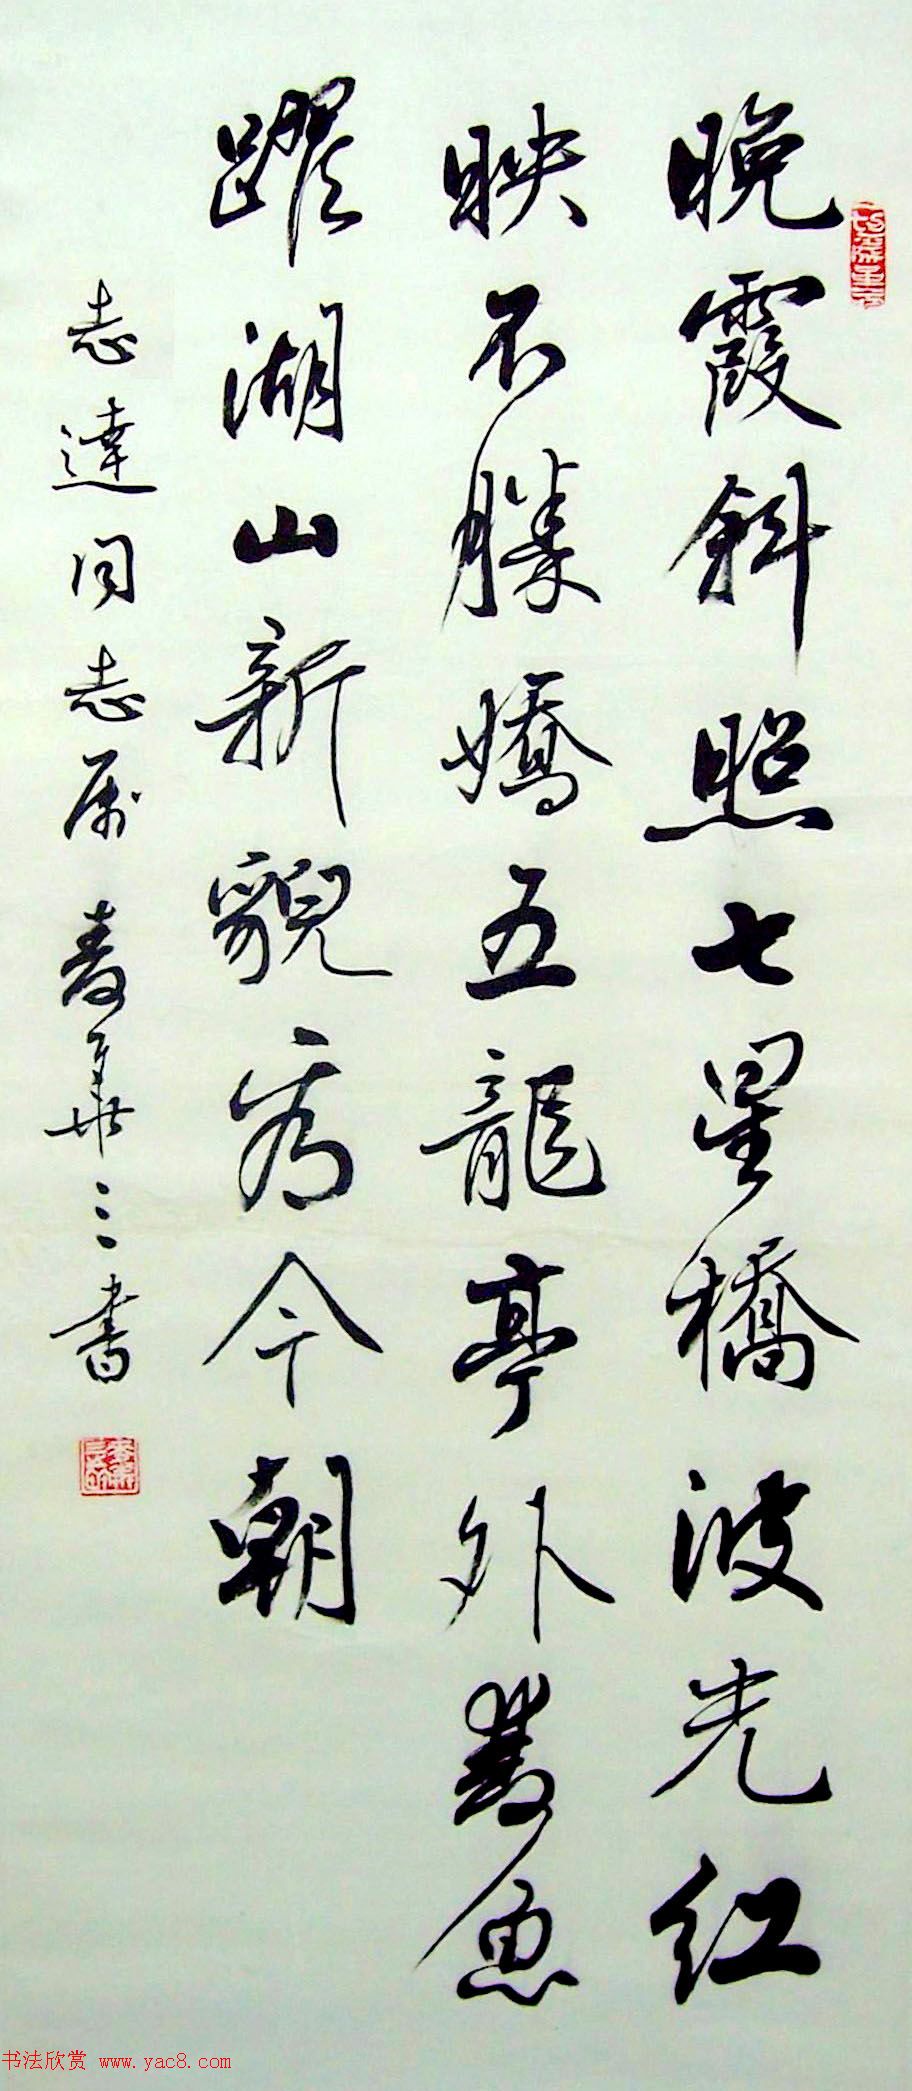 晚霞斜照七星橋波光紅
映不勝嬌五龍亭外雙魚
躍湖山新貌看今朝
志達同志屬 壽華三書
书法欣赏 www.yac8.com